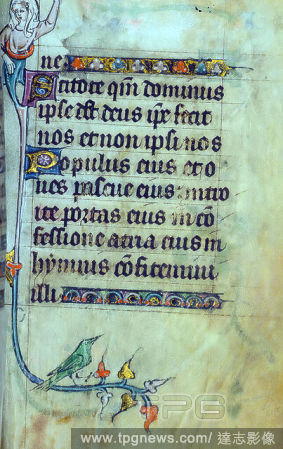 ne
Scitote qm dominus
ipse est deus ipe fecit
nos et non ipsi nos
Populus eius et o
ues pascue eius intro
ite portas eius in co
fessione atria eius in
hymnis cofitemini
illi
TPG
www.tpgnews.com/ 達志影像